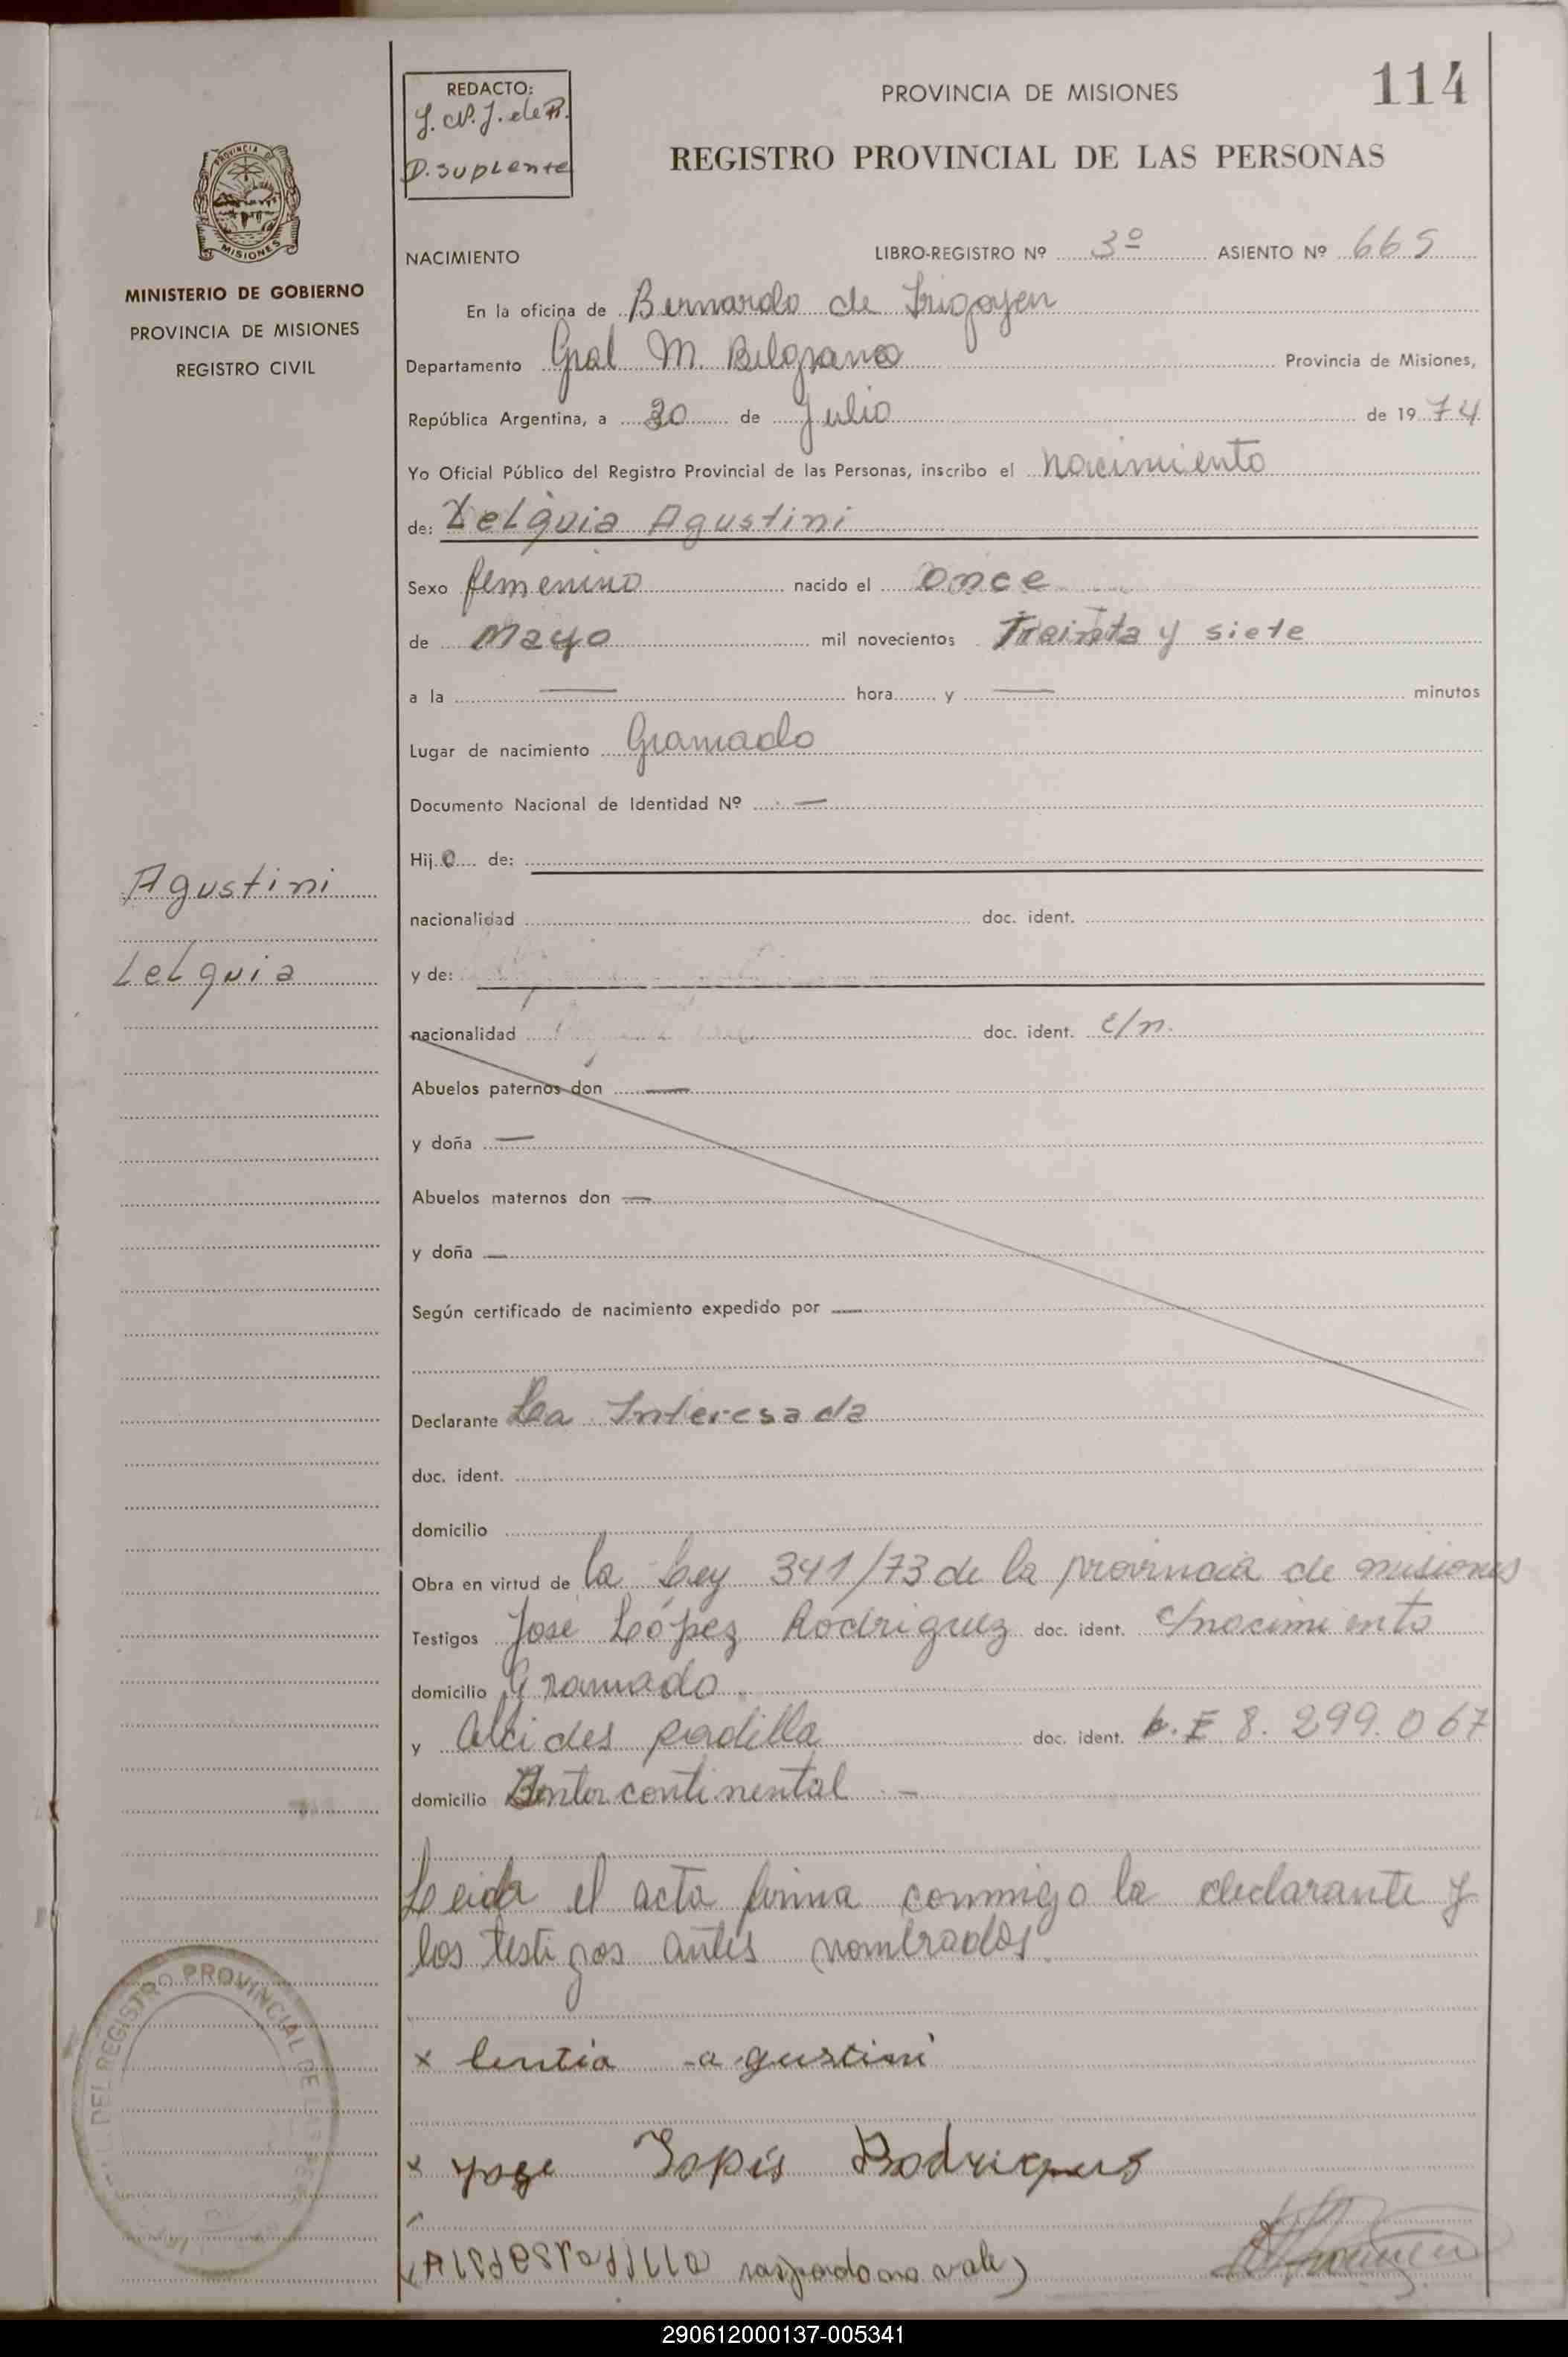 114
REDACTO:
D. suplente
PROVINCIA DE MISIONES
REGISTRO PROVINCIAL DE LAS PERSONAS
PROVINCIA DE
MISIONES
MINISTERIO DE GOBIERNO
PROVINCIA DE MISIONES
REGISTRO CIVIL
NACIMIENTO LIBRO-REGISTRO Nº 3º ASIENTO Nº 665
En la oficina de Bernardo de Irigoyen
Departamento Gral M. Belgrano Provincia de Misiones,
República Argentina, a 30 de Julio de 1974
Yo Oficial Público del Registro Provincial de las Personas, inscribo el nacimiento
de: Lelquia Agustini
Sexo femenino nacido el once
de Mayo mil novecientos Treinta y siete
a la — hora y — minutos
Lugar de nacimiento Gramado
Documento Nacional de Identidad Nº —
Hij de:
nacionalidad doc. ident.
y de:
nacionalidad doc. ident. c/n.
Abuelos paternos don —
y doña —
Abuelos maternos don —
y doña —
Según certificado de nacimiento expedido por —
Agustini
Lelquia
Declarante La Interesada
doc. ident.
domicilio
Obra en virtud de la Ley 341/73 de la provincia de misiones
Testigos José López Rodriguez doc. ident. c/nacimiento
domicilio Gramado
y Alcides padilla doc. ident. L.E 8.299.067
domicilio Intercontinental —
Leida el acta firma conmigo la declarante y
los testigos antes nombrados
x lentia agustini
x yose Lopis Rodrigues
raspado no vale)
DEL REGISTRO PROVINCIAL DE LAS PER
290612000137-005341